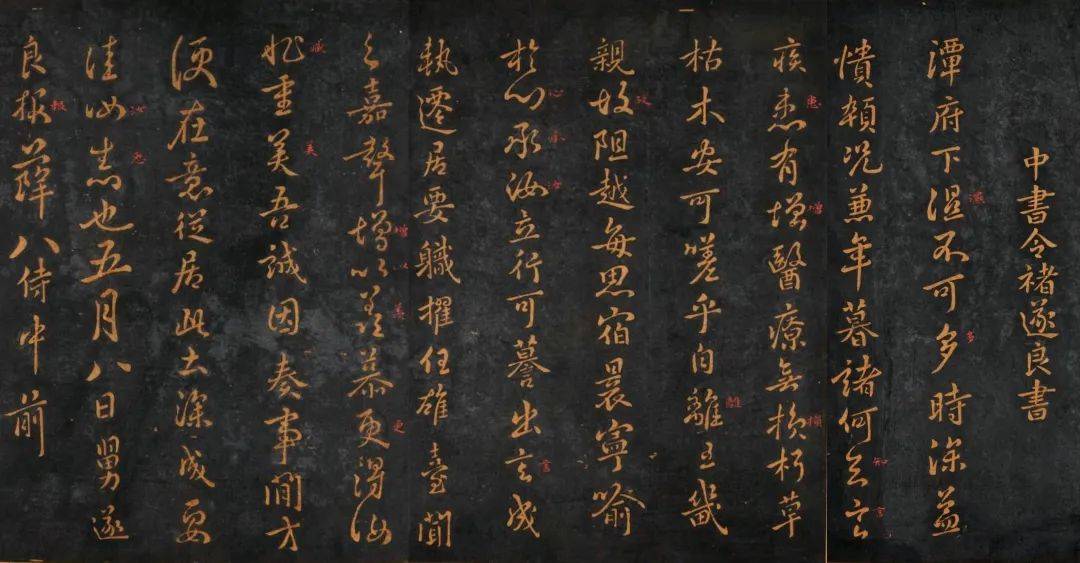 中書令褚遂良書
潭府下濕不可多時深益
憒頓況兼年暮諸何知言
疾患有增醫療無損朽草
枯木安可嗟乎自離王畿
親故阻越每思宿曩寧喻
於心承汝立行可譽出言成
執遷居要職擢任雄臺聞
之嘉聲增以羨慕更得汝
重美吾誠因奏事間方
便在意從居此去深成要
佳汝志也五月八日舅遂
良報薛八侍中前